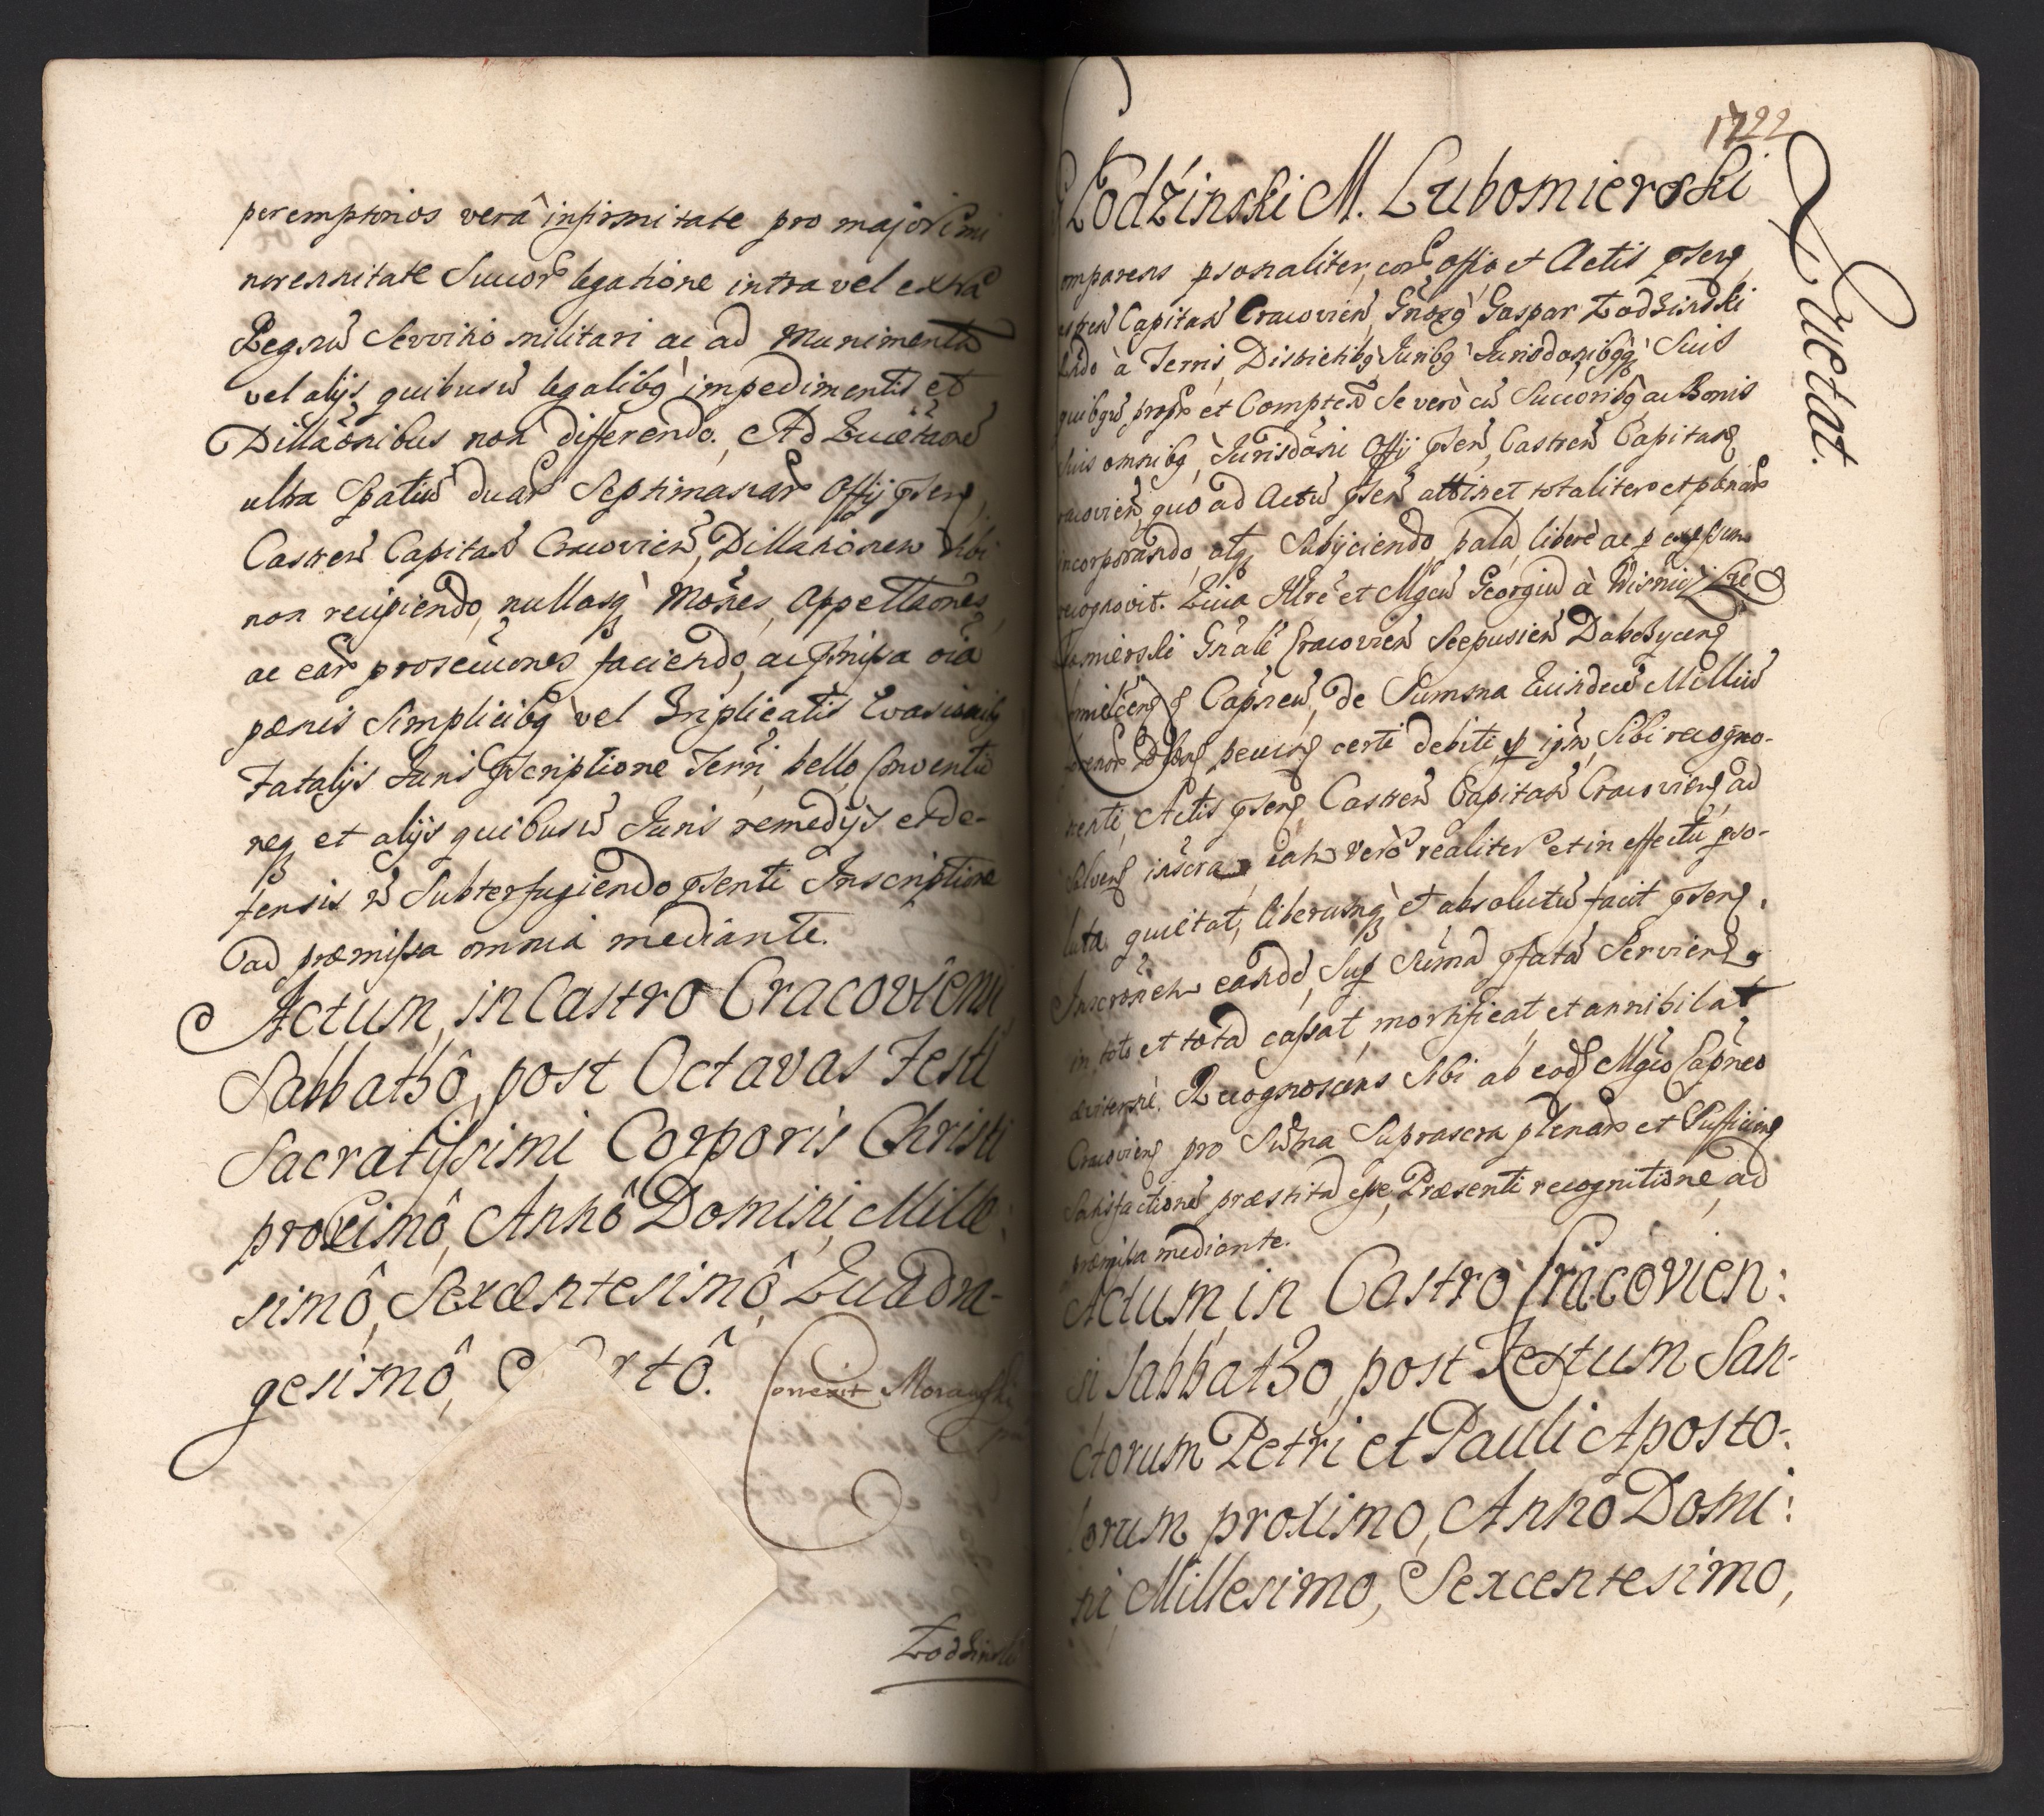 peremptorios verâ infirmitate pro majori mi
necessitate Succor legatione intra vel extra
Regnũ Servitio militari ac ad Munimenta
vel alijs quibusũ legalibq impedimentis et
Dillãonibus non differendo. Ad Quietãone
ultra Spatiũ duar Septimanar Offij pseng
Castren Capitan Cracovien, Dillationem sibi
non recipiendo, nullasq Mones, Appellãones,
ac ear prosecuones faciendo, ac pmissa oiã
pænis simplicibq vel Triplicatis Evasionibq
Fatalijs Juris pscriptione Terri, bello Conventũ
neq et alijs quibusũ Juris remedijs et de-
fensis ñ Subterfugiendo psenti Inscriptione
ad præmissa omnia mediante.
Actum, in Castro Cracoviensi
Sabbathô, post Octavas Festi
Sacratissimi Corporis Christi
proximô, Annô Domini, Mille:
simô, Sexcentesimô, Quadra-
gesimô, rtô. Correxit Morawski
Łodzinski
1722
Łodźinski M. Lubomierski
Quietat.
omparens psonaliter, cor Offio et Actis pseng
Castren Capitan Cracovien, Gnosq Gaspar Łodzinski
ndo à Terris, Districtibq Juribq Jurisdõnibqq Suis
quibqũ propr et Compten Se verò cũ Succoribq ac Bonis
Suis omnibq, Jurisdõni Offij psen, Castren Capitang
racovien, quo ad Actũ psen attinet totaliter et plenar
incorporando, atq Subijciendo, palã, liberè ac p expssum
recognovit. Quia Illrẽ et Mgcũ Georgiũ à Wisnicz Lub
omierski Gñalẽ Cracovien Scepusien Dobczyceng
Capneũ, de Summa Quindecũ Milliũ
pecung certi debiti, p ipm Sibi recogno-
nenti, Actis pseng Castren Capitan Cracovieng ad
Solveng inscra eam verò realiter et in effectu pso-
luta quietat, liberumq et absolutũ facit pseng.
Inscronem eandẽ, Sup Sũmã pfatã Servieng
in toto et totã cassat, mortificat et annihilat
æviternè. Recognoscens Sibi ab eod Mgco Capneo
Cracovieng pro Sũma Suprascra plenar et Sufficieng
Satisfactionẽ præstitã esse, Præsenti recognitione, ad
præmissa mediante.
Actum, in Castro Cracovien:
si Sabbatho post Festum San-
ctorum Petri et Pauli Aposto-
lorum proximo, Anno Domi:
ni Millesimo, Sexcentesimo,